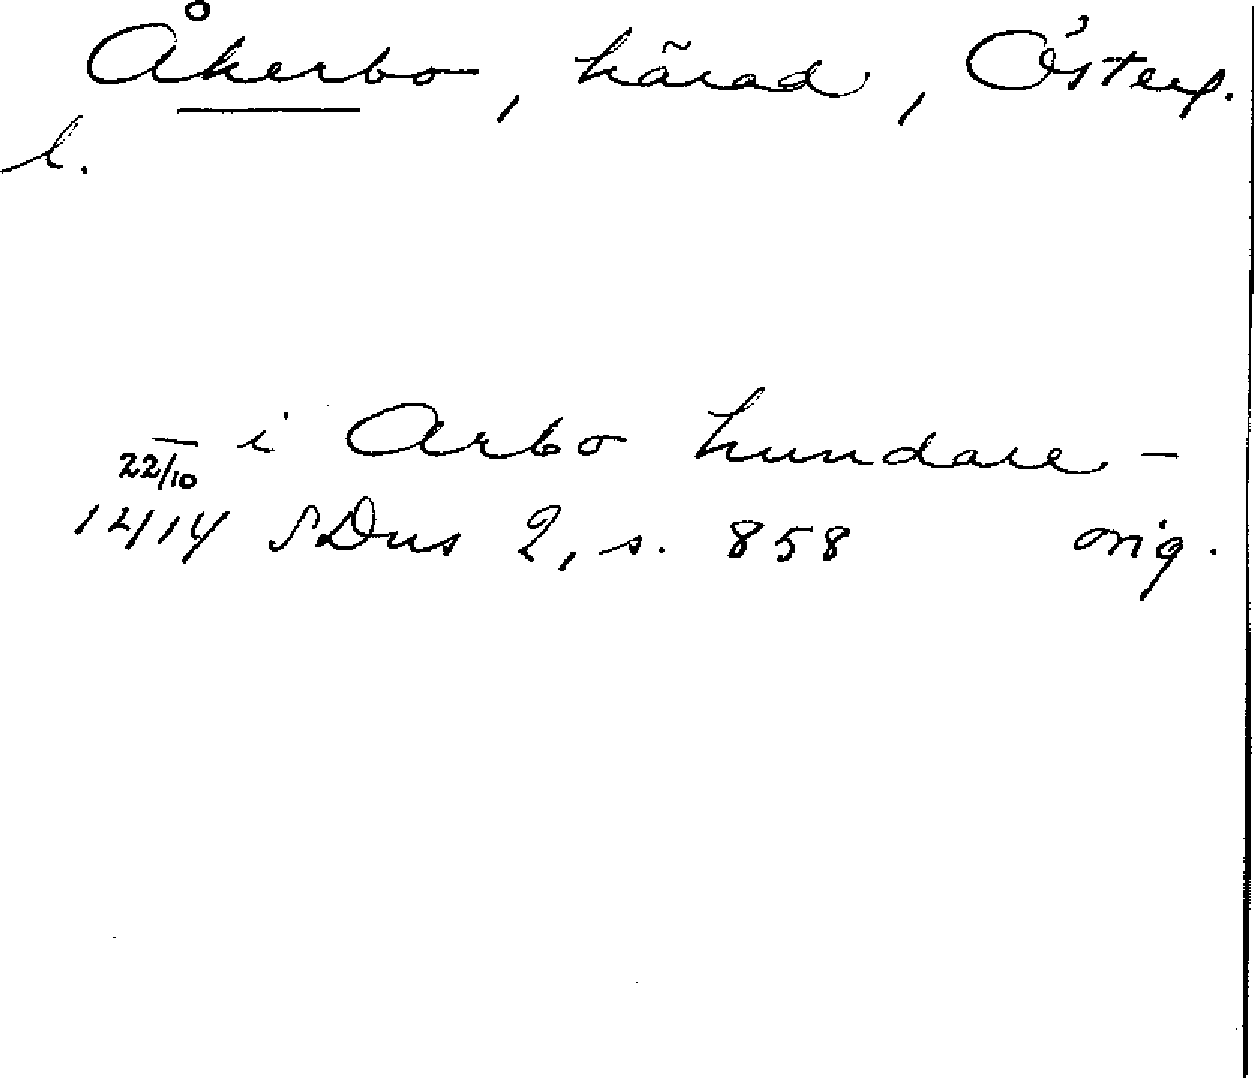 Åkerbo, härad, Österg.
l.
– i Arbo hundare –
22/10
1414 SDns 2, s. 858 orig.